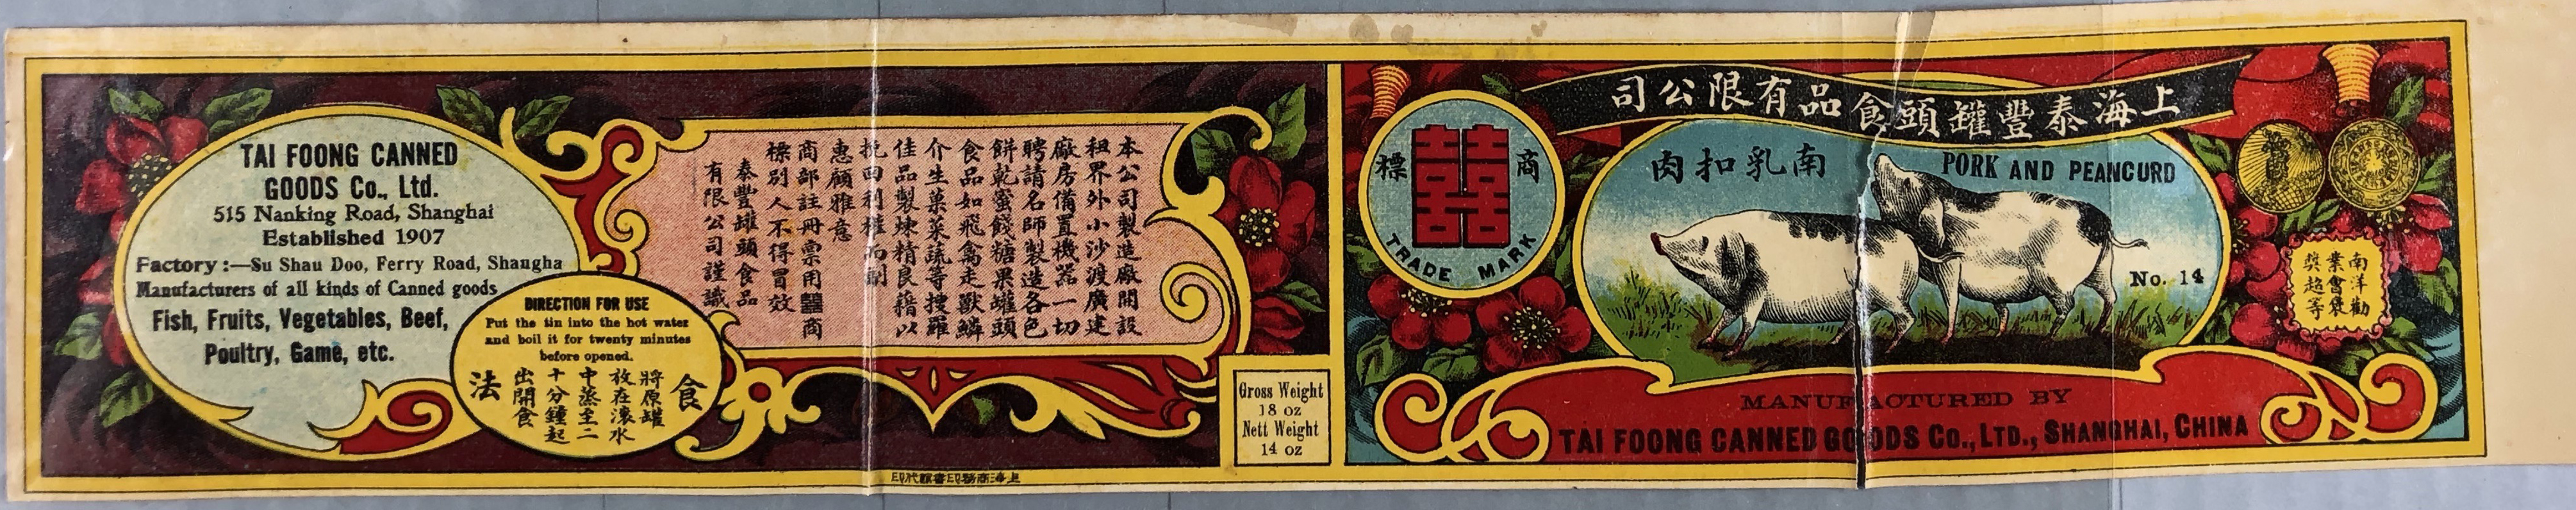 TAI FOONG CANNED
GOODS Co., Ltd.
515 Nanking Road, Shanghai
Established 1907
Factory:—Su Shau Doo, Ferry Road, Shangha
Manufacturers of all kinds of Canned goods
Fish, Fruits, Vegetables, Beef,
Poultry, Game, etc.
DIRECTION FOR USE
Put the tin into the hot water
and boil it for twenty minutes
before opened.
食法
將原罐
放在滚水
中蒸至二
十分鐘起
出開食
本公司製造廠開設
租界外小沙渡廣建
廠房備置機器一切
聘請名師製造各色
餅乾蜜餞糖果罐頭
食品如飛禽走獸鱗
介生菓菜蔬等搜羅
佳品製煉精良藉以
挽回利權而副
惠顧雅意
商部註冊票用囍商
標別人不得冒效
泰豐罐頭食品
有限公司謹識
Gross Weight
18 oz
Nett Weight
14 oz
上海商務印書館代印
上海泰豐罐頭食品有限公司
商標
囍
TRADE MARK
南乳扣肉
PORK AND PEANCURD
No. 14
南洋勸
業會褒
獎超等
MANUFACTURED BY
TAI FOONG CANNED GOODS Co., LTD., SHANGHAI, CHINA